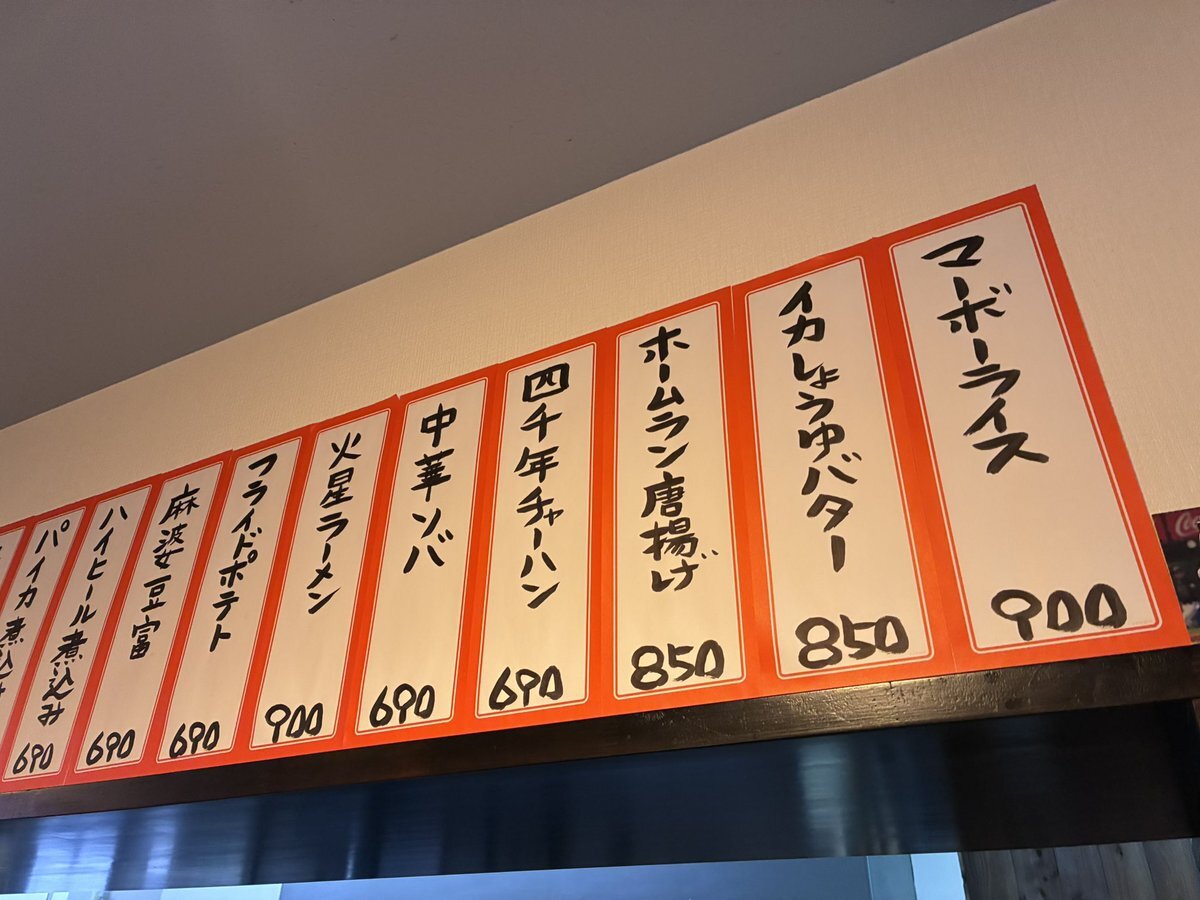 マーボーライス
900
イカしょうゆバター
850
ホームラン唐揚げ
850
四千年チャーハン
690
中華ソバ
690
火星ラーメン
900
フライドポテト
690
麻婆豆富
690
ハイヒール煮込み
690
パイカ煮込み